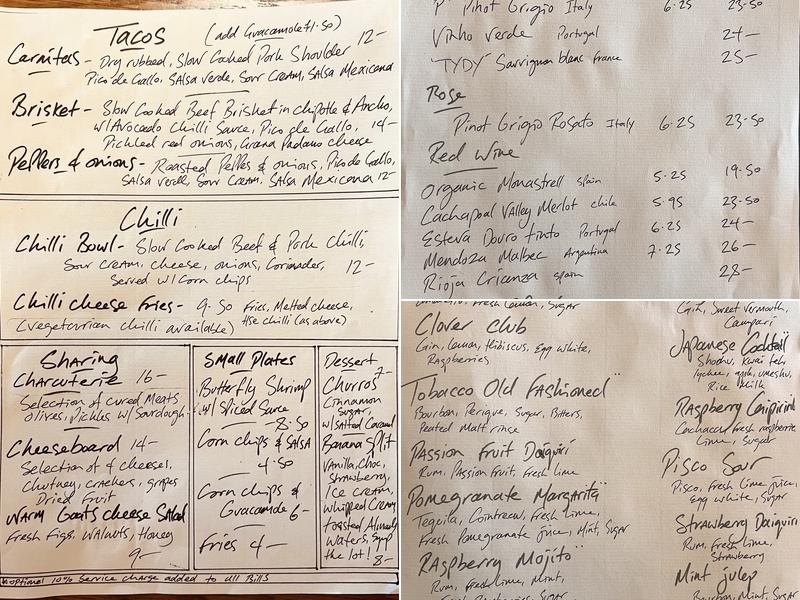 Tacos (add Guacamole £1.50)
Carnitas - Dry rubbed, Slow Cooked Pork Shoulder 12-
Pico de Gallo, Salsa verde, Sour Cream, Salsa Mexicana
Brisket - Slow Cooked Beef Brisket in chipotle & Ancho,
w/Avocado Chilli Sauce, Pico de Gallo, 14-
Pickled red onions, Grana Padano cheese
Peppers & onions - Roasted Peppers & onions, Pico de Gallo,
Salsa verde, Sour Cream, Salsa Mexicana 12-
Chilli
Chilli Bowl - Slow Cooked Beef & Pork chilli,
Sour cream, cheese, onions, Coriander, 12-
Served w/ Corn chips
Chilli cheese Fries - 9.50 Fries, Melted cheese,
(vegetarian chilli available) Hse chilli (as above)
Sharing
Charcuterie 16-
Selection of Cured Meats
Olives, Pickles w/ Sourdough
Cheeseboard 14-
Selection of 4 cheeses,
Chutney, crackers, grapes
Dried Fruit
Warm Goats cheese Salad
Fresh Figs, Walnuts, Honey
9-
Small Plates
Butterfly Shrimp
w/ Sliced Sauce
8.50
Corn chips & Salsa
4.50
Corn chips &
Guacamole 6-
Fries 4-
Dessert
Churros 7-
Cinnamon
Sugar,
w/Salted Caramel
Banana Split
Vanilla, Choc,
Strawberry,
Ice cream,
Whipped Cream
toasted Almonds
Wafers, Syrup
the lot! 8-
optional 10% Service charge added to all Bills
Pinot Grigio Italy 6.25 23.50
Vinho verde Portugal 24-
"TYDY" Sauvignon blanc France 25-
Rose
Pinot Grigio Rosato Italy 6.25 23.50
Red Wine
Organic Monastrell Spain 5.25 19.50
Cachapoal Valley Merlot chile 5.95 23.50
Esteva Douro tinto Portugal 6.25 24-
Mendoza Malbec Argentina 7.25 26-
Rioja Crianza Spain 28-
Fresh Lemon, Sugar
Clover Club
Gin, Lemon, Hibiscus, Egg White,
Raspberries
Tobacco Old Fashioned
Bourbon, Perique, Sugar, Bitters,
Peated Malt rinse
Passion Fruit Daiquiri
Rum, Passion Fruit, Fresh Lime
Pomegranate Margarita
Tequila, Cointreau, Fresh Lime,
Fresh Pomegranate juice, Mint, Sugar
Raspberry Mojito
Rum, Fresh Lime, Mint,
Fresh Raspberries, Sugar
Gin, Sweet Vermouth,
Campari
Japanese Cocktail
Shochu, Kwai feh
lychee, apple, umeshu,
Rice Milk
Raspberry Caipirin
Cachaca, Fresh raspberrie
Lime, Sugar
Pisco Sour
Pisco, Fresh Lime juice,
Egg White, Sugar
Strawberry Daiquiri
Rum, Fresh Lime,
Strawberry
Mint julep
Bourbon, Mint, Sugar